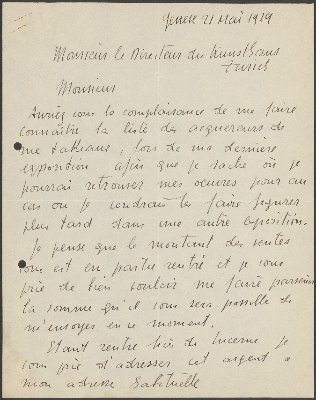 Genève 21 Mai 1939
Monsieur le Directeur du Kunsthaus
Zurich
Monsieur
Auriez vous la complaisance de me faire
connaître la liste des acquereurs de
me tableaux, lors de ma derniere
exposition afin que je sache où je
pourrai retrouver mes oeuvres pour au
cas ou je voudrais les faire figurer
plus tard dans une autre exposition.
Je pense que le montant des ventes
vous est en partie rentré et je vous
prie de bien vouloir me faire parvenir
la somme qu'il vous sera possible de
m'envoyer en ce moment.
Etant rentré hier de Lucerne je
vous prie d'adresser cet argent a
mon adresse habituelle